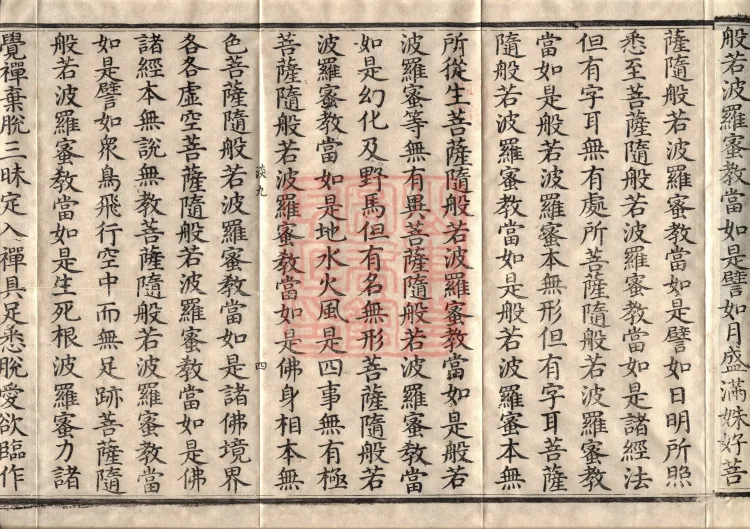 般若波羅蜜教當如是譬如月盛滿姝好菩
薩隨般若波羅蜜教當如是譬如日明所照
悉至菩薩隨般若波羅蜜教當如是諸經法
但有字耳無有處所菩薩隨般若波羅蜜教
當如是般若波羅蜜本無形但有字耳菩薩
隨般若波羅蜜教當如是般若波羅蜜本無
所從生菩薩隨般若波羅蜜教當如是般若
波羅蜜等無有異菩薩隨般若波羅蜜教當
如是幻化及野馬但有名無形菩薩隨般若
波羅蜜教當如是地水火風是四事無有極
菩薩隨般若波羅蜜教當如是佛身相本無
談九 四
色菩薩隨般若波羅蜜教當如是諸佛境界
各各虛空菩薩隨般若波羅蜜教當如是佛
諸經本無說無教菩薩隨般若波羅蜜教當
如是譬如衆鳥飛行空中而無足跡菩薩隨
般若波羅蜜教當如是生死根波羅蜜力諸
覺禪棄脫三昧定入禪具足悉脫愛欲臨作